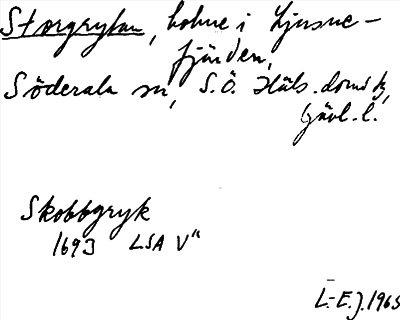 Storgrytan, holme i Ljusne-
fjärden,
Söderala sn, S.Ö. Häls. doms.,
Gävl. l.
Skobbgryk
1693 LSA V"
L.-E.J. 1965